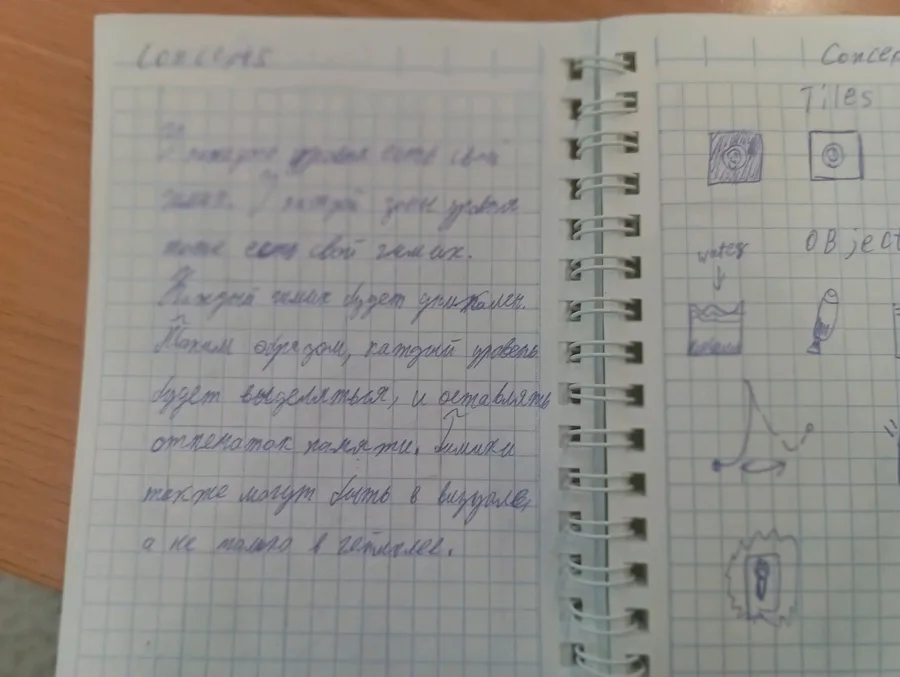 Concepts
У каждого уровня есть свой
гимик. У каждой зоны уровня
тоже есть свой гимик.
Каждый гимик будет уникален.
Таким образом, каждый уровень
будет выделяться, и оставлять
отпечаток памяти. Гимики
также могут быть в визуале,
а не только в геймплее.
Concep
Tiles
water
OBject